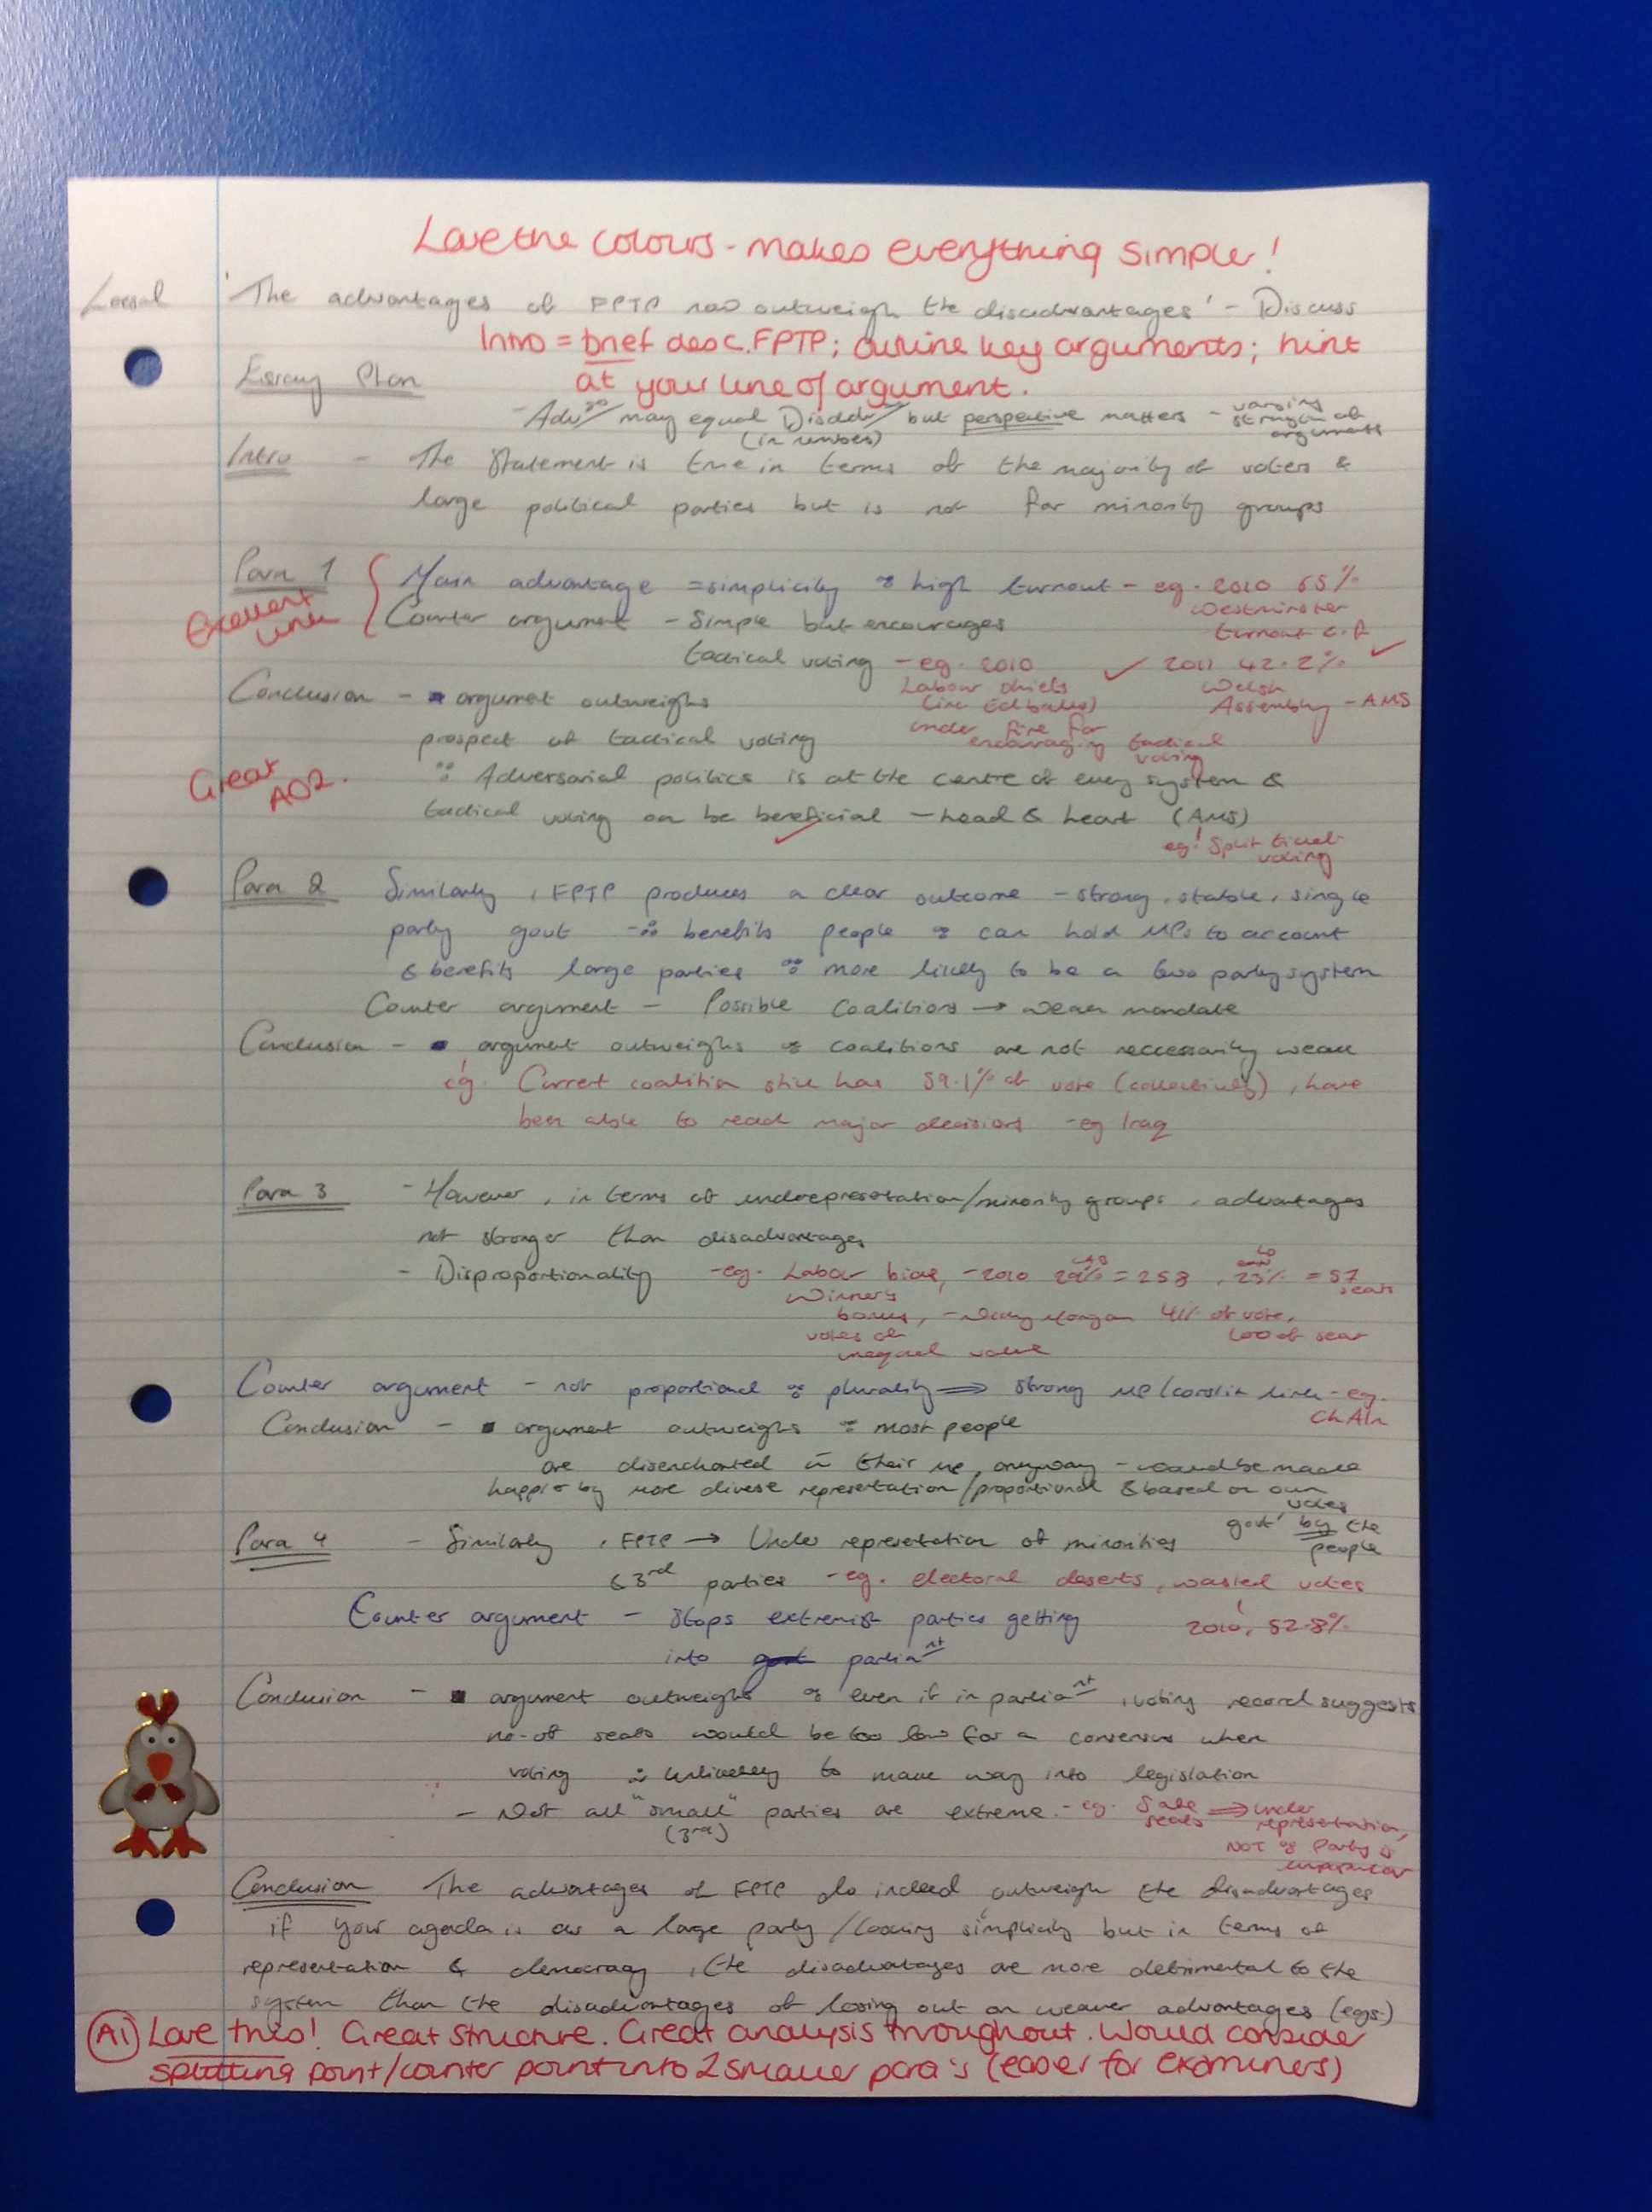 Love the colours - makes everything simple!
'The advantages of FPTP now outweigh the disadvantages' - Discuss
Intro = brief desc. FPTP; outline key arguments; hint
at your line of argument.
Essay Plan
- Adv may equal Disadv but perspective matters - varying strength of arguments
(in number)
Intro - The statement is true in terms of the majority of voters &
large political parties but is not for minority groups
Para 1 Main advantage = simplicity ∵ high turnout - eg. 2010 65%
Westminster
turnout c.f.
Excellent
Counter argument - Simple but encourages
tactical voting - eg. 2010
2011 42.2%
Labour chiefs
(inc Ed Balls)
under fire for
encouraging tactical
voting
Welsh
Assembly - AMS
Conclusion - argument outweighs
prospect of tactical voting
Great
AO2.
∵ Adversarial politics is at the centre of every system &
tactical voting can be beneficial - head & heart (AMS)
eg! Split ticket
voting
Para 2 Similarly, FPTP produces a clear outcome - strong, stable, single
party govt ∴ benefits people ∵ can hold MPs to account
& benefits large parties ∵ more likely to be a two party system
Counter argument - Possible Coalitions → weak mandate
Conclusion - argument outweighs ∵ coalitions are not neccessarily weak
eg. Current coalition still has 59.1% of vote (collectively), have
been able to reach major decisions - eg Iraq
Para 3 - However, in terms of underrepresentation/minority groups, advantages
not stronger than disadvantages
- Disproportionality - eg. Labour bias, - 2010 29% = 258, 23% = 57
seats
Winner's
bonus,
41% of vote,
votes of
unequal value
Counter argument - not proportional ∵ plurality ⟹ strong MP/constit link - eg.
Conclusion - argument outweighs ∵ most people
are disenchanted their MP anyway - would be made
happier by more diverse representation/proportional & based on our
votes
govt' by the
people
Para 4 - Similarly, FPTP → Under representation of minorities
& 3rd parties - eg. electoral deserts, wasted votes
2010, 52.8%
Counter argument - Stops extremist parties getting
into govt parliant
Conclusion - argument outweighs ∵ even if in parliant, voting record suggests
no. of seats would be too low for a consensus when
voting ∴ unlikely to make way into legislation
- Not all "small" parties are extreme. - eg. Safe
seats ⟹ under
representation,
(3rd)
NOT ∵ Party is
unpopular
Conclusion The advantages of FPTP do indeed outweigh the disadvantages
if your agenda is as a large party / looking simplicity but in terms of
representation & democracy, the disadvantages are more detrimental to the
system than the disadvantages of losing out on weaker advantages (egs.)
A1 Love this! Great structure. Great analysis throughout. Would consider
splitting point/counter point into 2 smaller para's (easier for examiners)